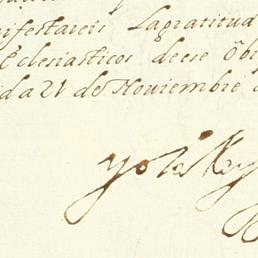 nifestareis La gratitud
Eclesiasticos de ese Obi
da 21 de Nouiembre
Yo la Rey